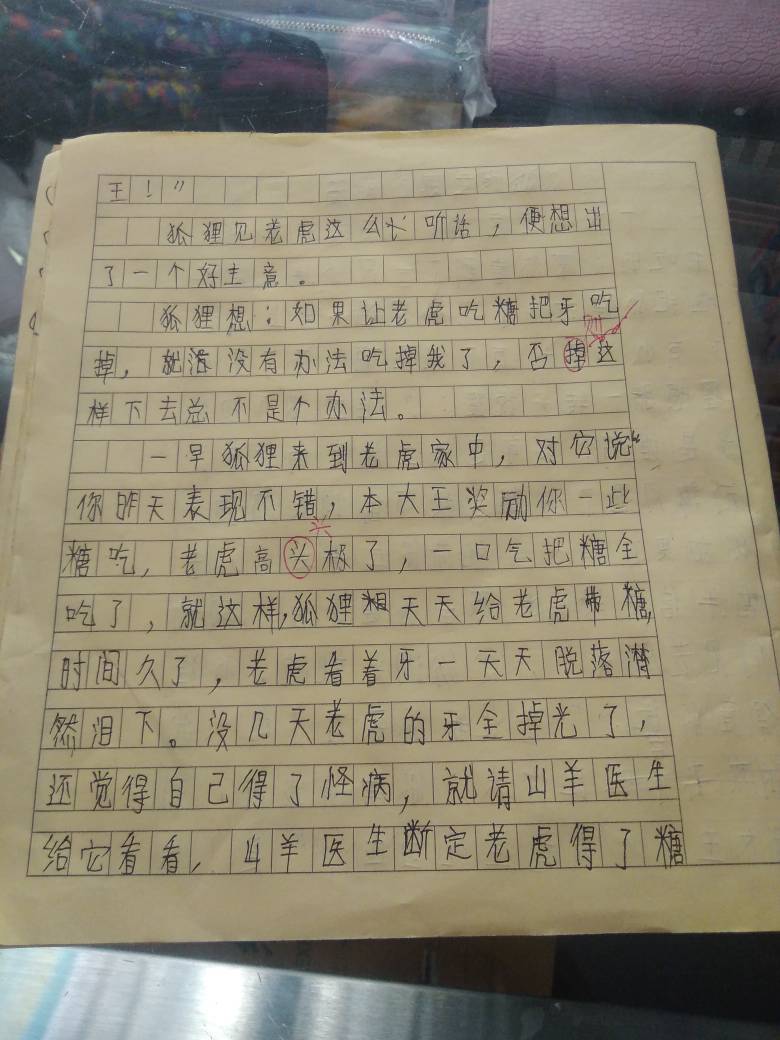 王！”
狐狸见老虎这么听话，便想出
了一个好主意。
狐狸想：如果让老虎吃糖把牙吃
则
掉，就没有办法吃掉我了，否掉这
样下去总不是个办法。
一早狐狸来到老虎家中，对它说“
你昨天表现不错，本大王奖励你一些
兴
糖吃，老虎高头极了，一口气把糖全
吃了，就这样，狐狸天天给老虎带糖，
时间久了，老虎看着牙一天天脱落潸
然泪下。没几天老虎的牙全掉光了，
还觉得自己得了怪病，就请山羊医生
给它看看，山羊医生断定老虎得了糖